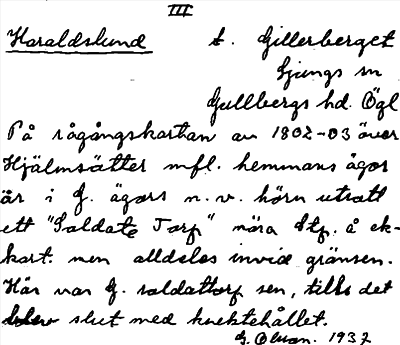 III
Haraldslund t. Gillerberget
Ljungs sn
Gullbergs hd. Ögl
På rågångskartan av 1802-03 över
Hjälmsätter m fl. hemmans ägor
är i G. ägors n.v. hörn utsatt
ett "Soldate Torp" nära Stp. å ek-
kart. men alldeles invid gränsen.
Här var G. soldattorp sen, tills det
blev slut med knektehållet.
G. Olson. 1937